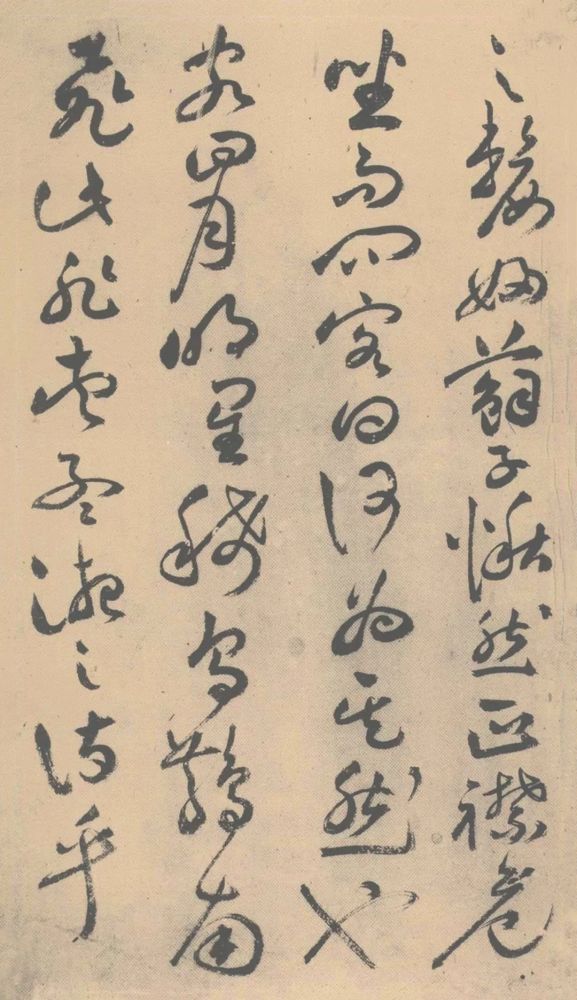 之嫠婦蘇子愀然正襟危
坐而問客曰何為其然也
客曰月明星稀烏鵲南
飛此非曹孟德之詩乎